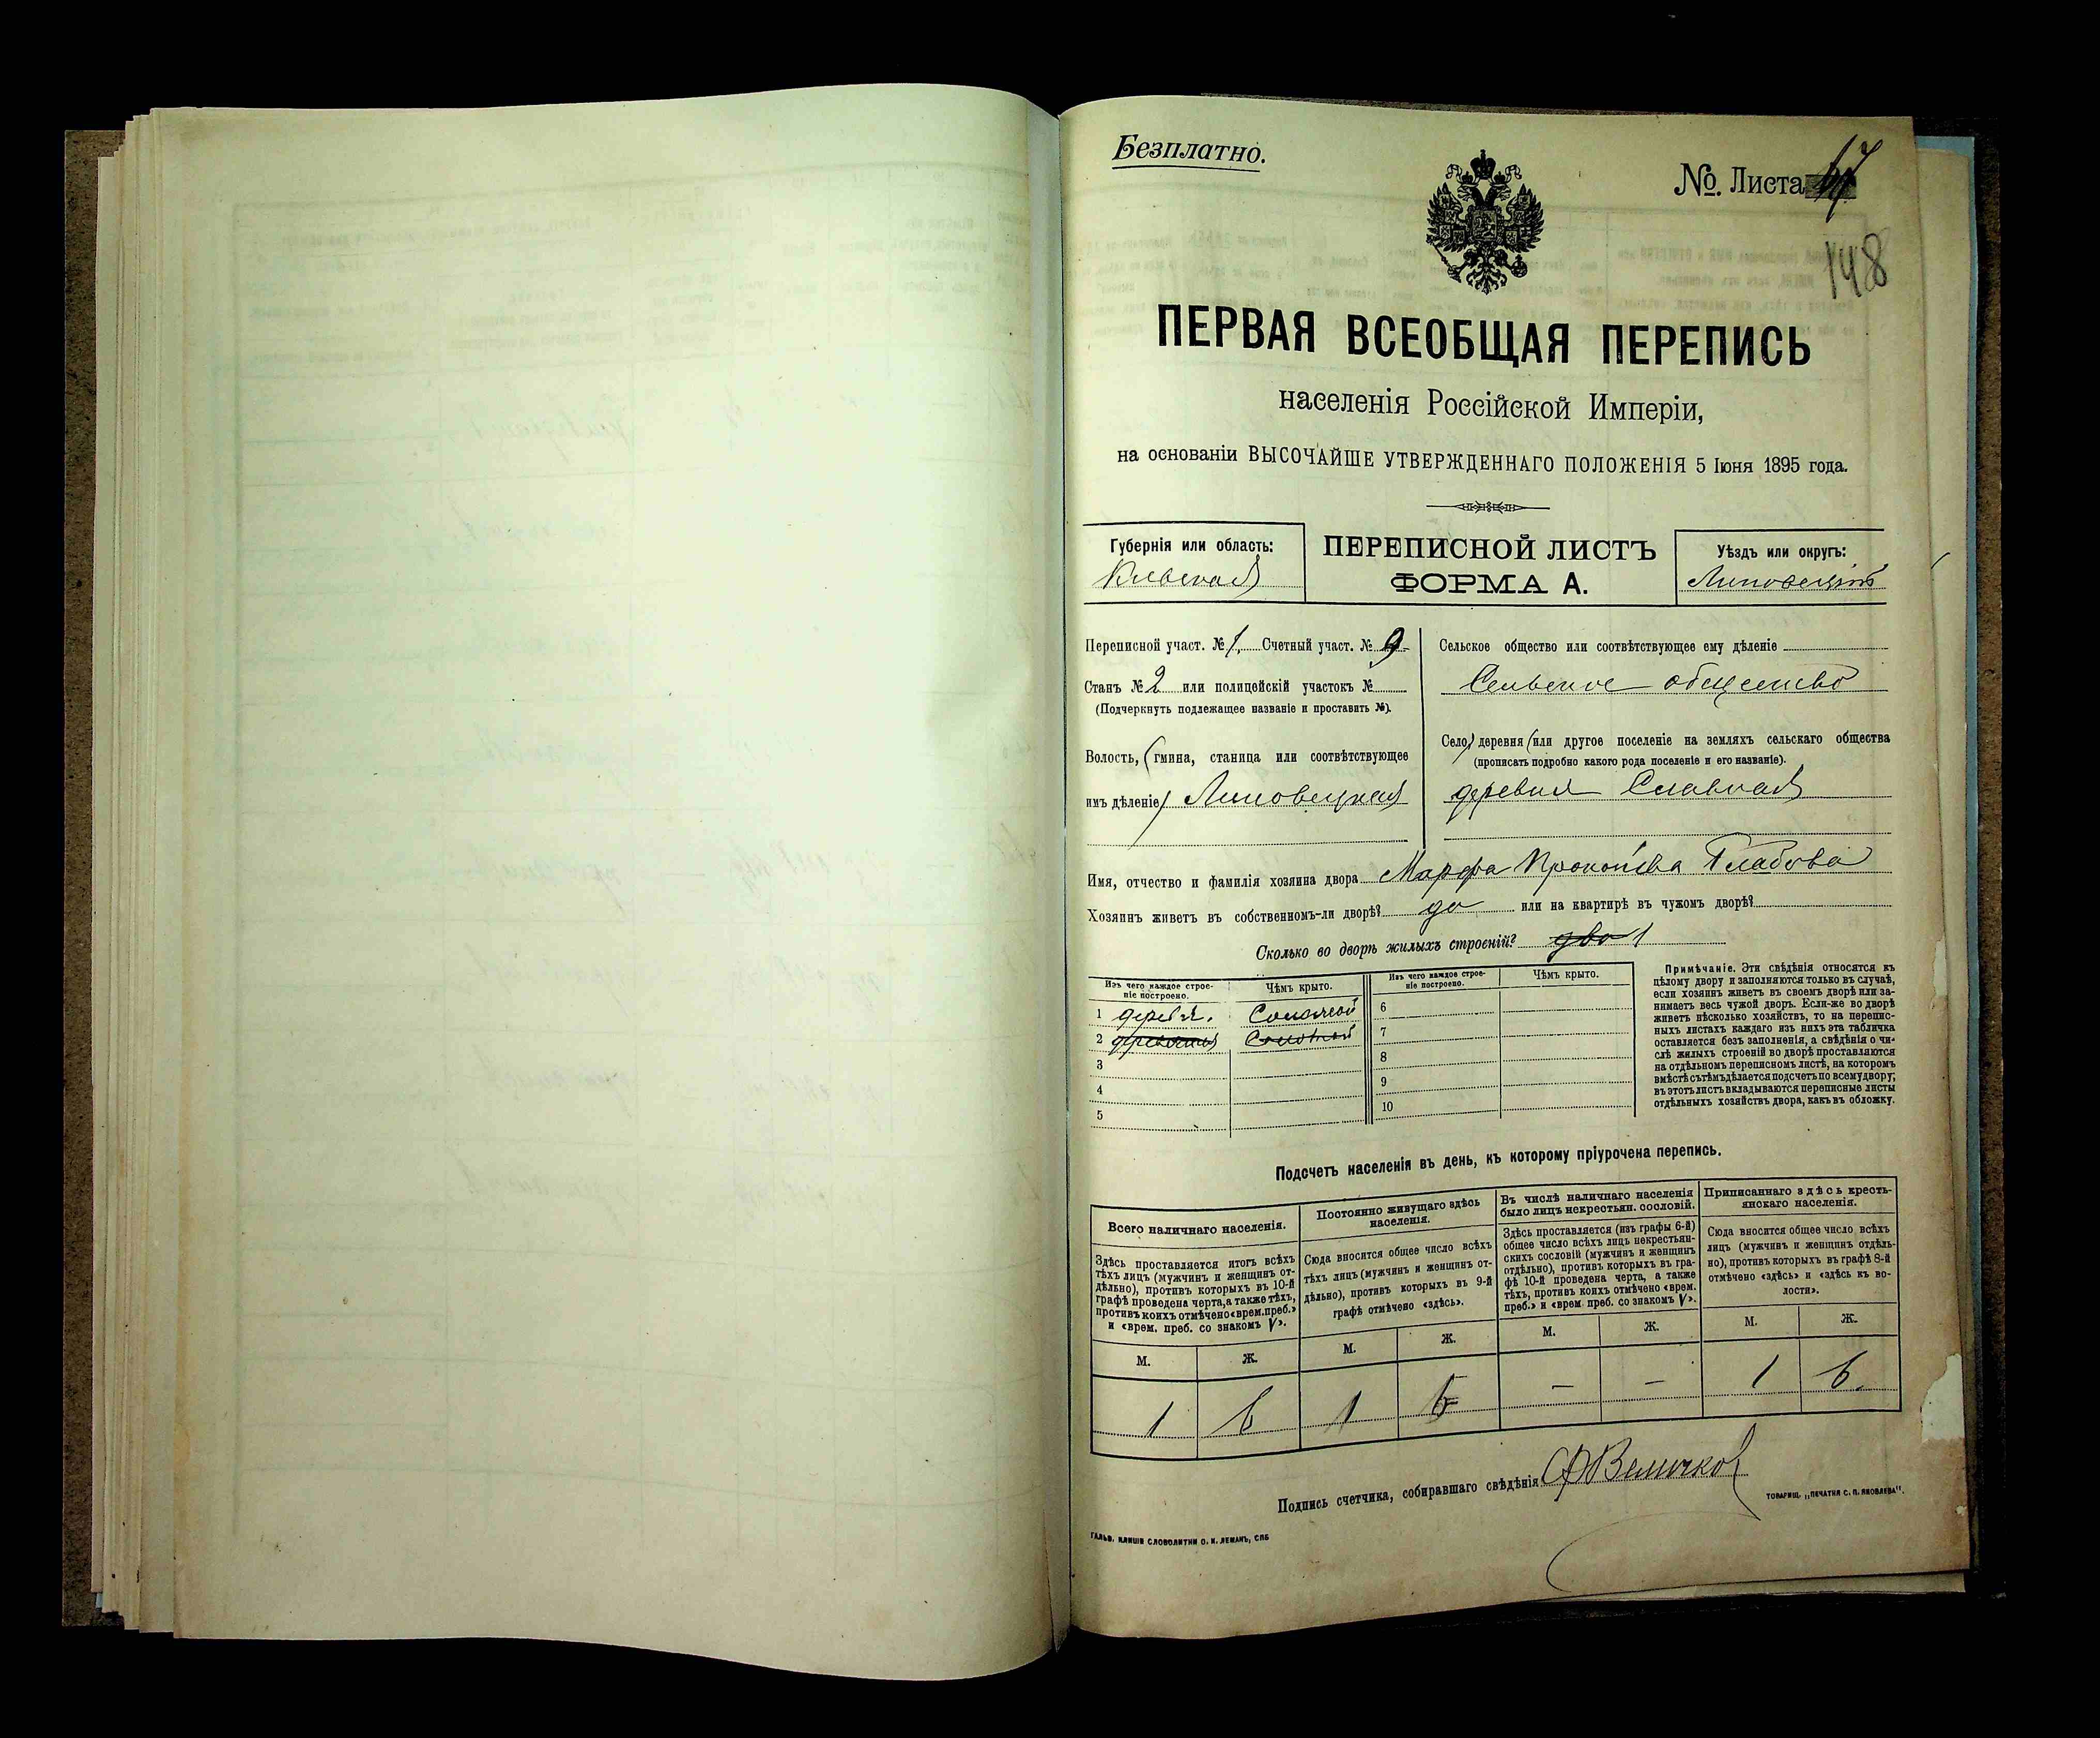 Безплатно.
№. Листа 67
148
ПЕРВАЯ ВСЕОБЩАЯ ПЕРЕПИСЬ
населенія Россійской Имперіи,
на основаніи ВЫСОЧАЙШЕ УТВЕРЖДЕННАГО ПОЛОЖЕНІЯ 5 Іюня 1895 года.
Губернія или область:
Кіевская
ПЕРЕПИСНОЙ ЛИСТЪ
ФОРМА А.
Уѣздъ или округъ:
Липовецкій
Переписной участ. № 1. Счетный участ. № 9
Станъ № 2 или полицейскій участокъ №
(Подчеркнуть подлежащее названіе и проставить №).
Волость, (гмина, станица или соотвѣтствующее
имъ дѣленіе) Липовецкая
Сельское общество или соотвѣтствующее ему дѣленіе
Сельское общество
Село, деревня (или другое поселеніе на земляхъ сельскаго общества
(прописать подробно какого рода поселеніе и его названіе).
деревня Славная
Имя, отчество и фамилія хозяина двора Марфа Прокопіева
Хозяинъ живетъ въ собственномъ-ли дворѣ? да или на квартирѣ въ чужомъ дворѣ?
Сколько во дворѣ жилыхъ строеній? два 1
Изъ чего каждое строе-
ніе построено.
Чѣмъ крыто.
Изъ чего каждое строе-
ніе построено.
Чѣмъ крыто.
1 деревя. Соломой
2
3
4
5
6
7
8
9
10
Примѣчаніе. Эти свѣдѣнія относятся къ
цѣлому двору и заполняются только въ случаѣ,
если хозяинъ живетъ въ своемъ дворѣ или за-
нимаетъ весь чужой дворъ. Если-же во дворѣ
живетъ нѣсколько хозяйствъ, то на перепис-
ныхъ листахъ каждаго изъ нихъ эта табличка
оставляется безъ заполненія, а свѣдѣнія о чи-
слѣ жилыхъ строеній во дворѣ проставляются
на отдѣльномъ переписномъ листѣ, на которомъ
вмѣстѣ съ тѣмъ дѣлается подсчетъ по всему двору;
въ этотъ листъ вкладываются переписные листы
отдѣльныхъ хозяйствъ двора, какъ въ обложку.
Подсчетъ населенія въ день, къ которому пріурочена перепись.
Всего наличнаго населенія.
Здѣсь проставляется итогъ всѣхъ
тѣхъ лицъ (мужчинъ и женщинъ от-
дѣльно), противъ которыхъ въ 10-й
графѣ проведена черта, а также тѣхъ,
противъ коихъ отмѣчено «врем. преб.»
и «врем. преб. со знакомъ V».
Постоянно живущаго здѣсь
населенія.
Сюда вносится общее число всѣхъ
тѣхъ лицъ (мужчинъ и женщинъ от-
дѣльно), противъ которыхъ въ 9-й
графѣ отмѣчено «здѣсь».
Въ числѣ наличнаго населенія
было лицъ некрестьян. сословій.
Здѣсь проставляется (изъ графы 6-й)
общее число всѣхъ лицъ некрестьян-
скихъ сословій (мужчинъ и женщинъ
отдѣльно), противъ которыхъ въ гра-
фѣ 10-й проведена черта, а также
тѣхъ, противъ коихъ отмѣчено «врем.
преб.» и «врем. преб. со знакомъ V».
Приписаннаго здѣсь кресть-
янскаго населенія.
Сюда вносится общее число всѣхъ
лицъ (мужчинъ и женщинъ отдѣль-
но), противъ которыхъ въ графѣ 8-й
отмѣчено «здѣсь» и «здѣсь къ во-
лости».
М. Ж. М. Ж. М. Ж. М. Ж.
1 6 1 6 — — 1 6.
Подпись счетчика, собиравшаго свѣдѣнія Величко
ГАЛЬВ. КЛИШЕ СЛОВОЛИТНИ О. И. ЛЕМАНЪ, СПБ
ТОВАРИЩ. „ПЕЧАТНЯ С. П. ЯКОВЛЕВА".